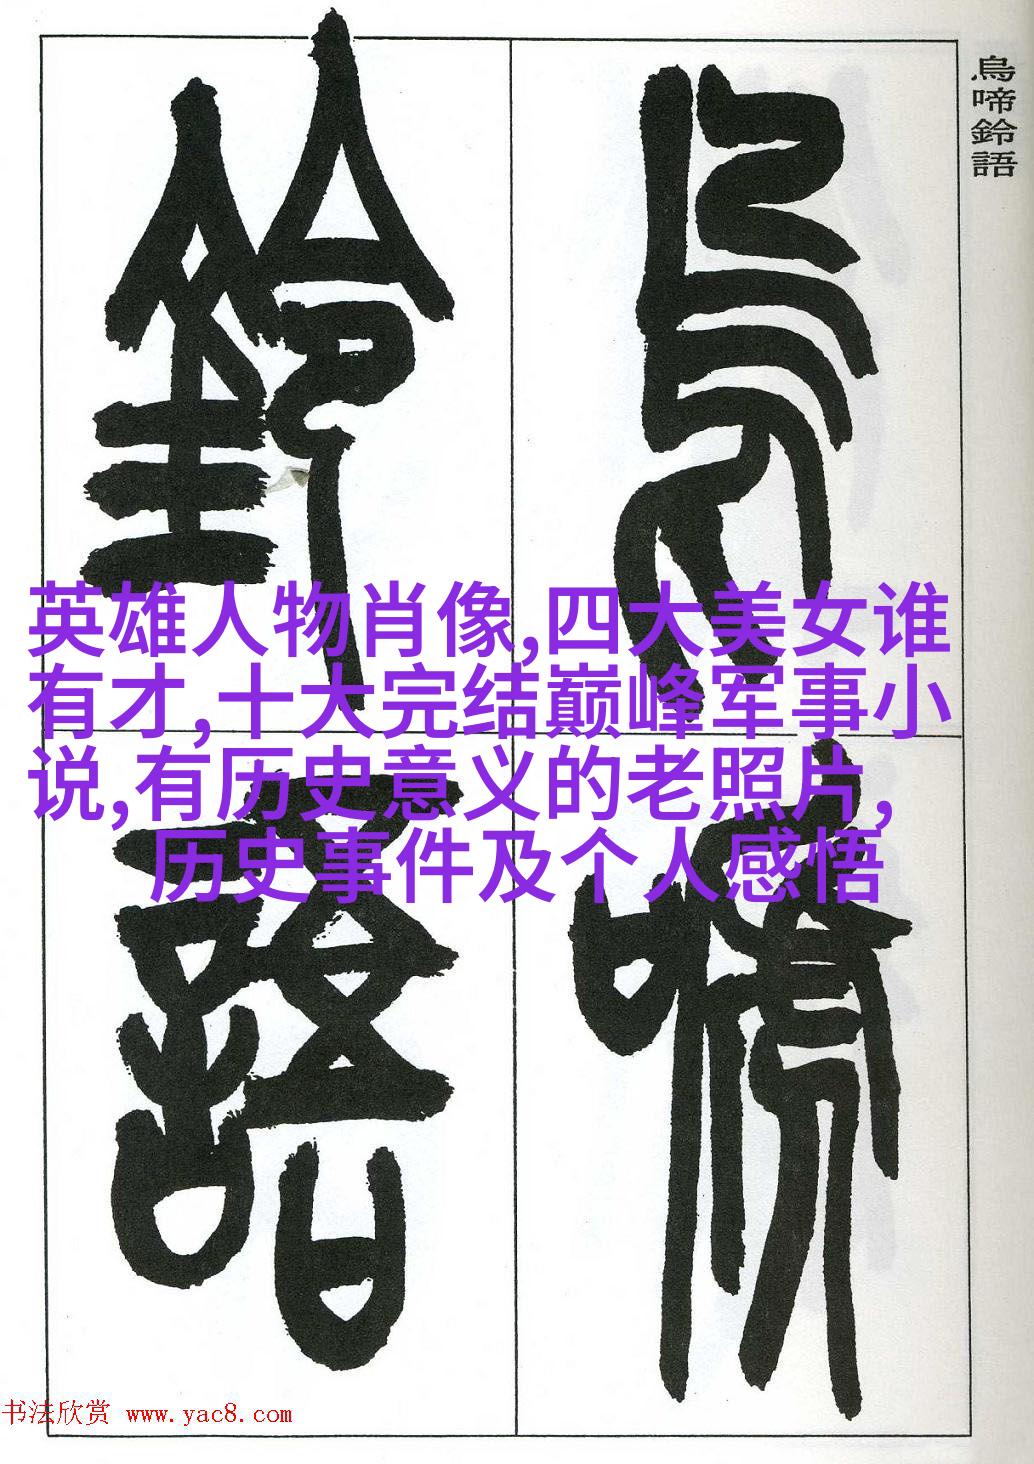 鳥啼鈴語
鳥啼
鈴語
英雄人物肖像,四大美女谁
有才,十大完结巅峰军事小
说,有历史意义的老照片,
历史事件及个人感悟
书法欣赏 www.yac8.com